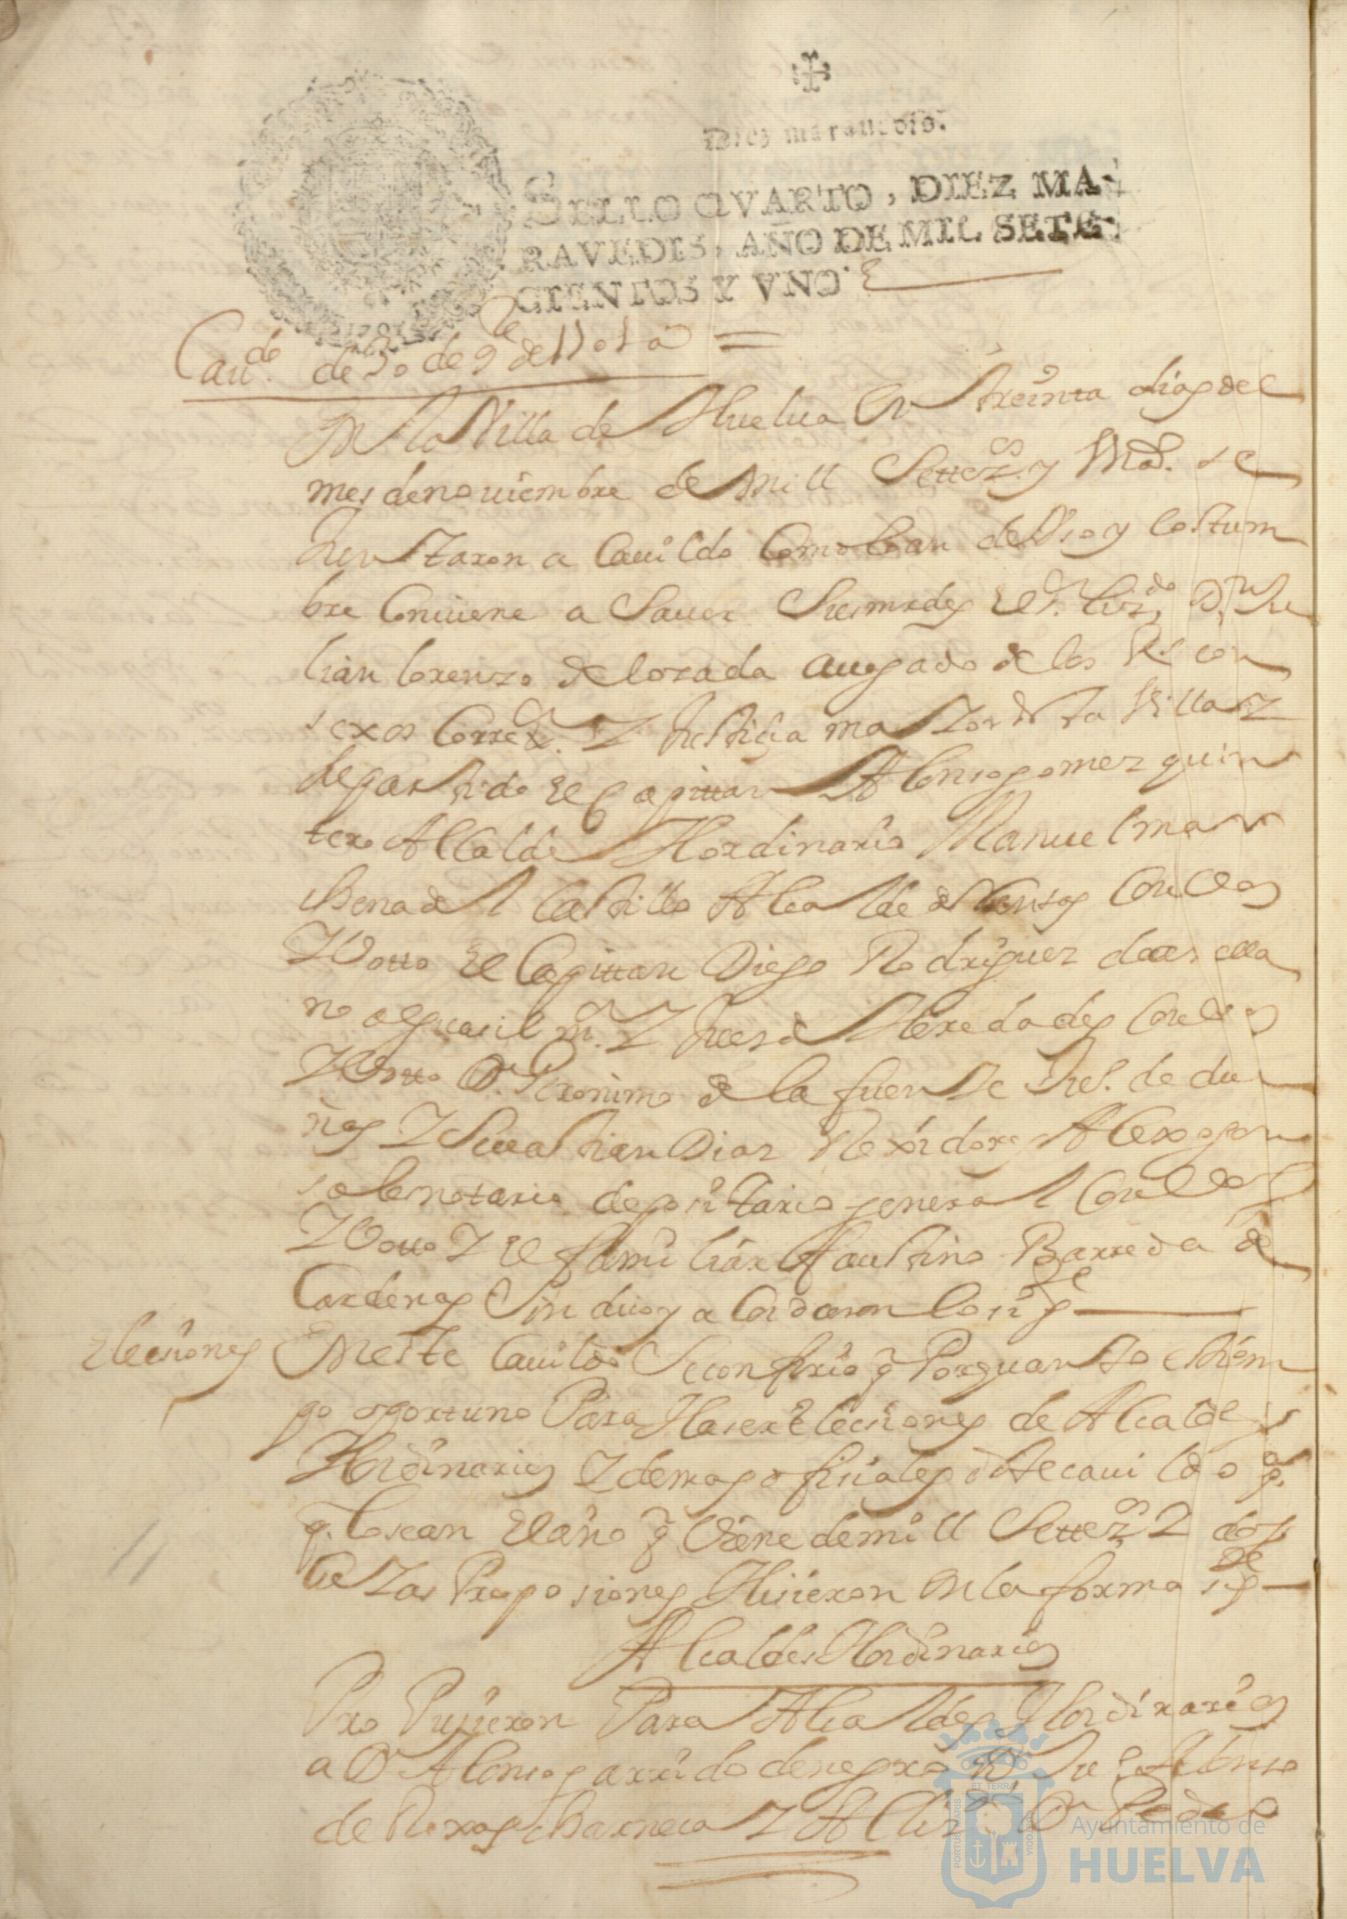 Diez marauedis.
SELLO QVARTO, DIEZ MA-
RAVEDIS, AÑO DE MIL SETE-
CIENTOS Y VNO.
1701
Caudo. de 30 de 9e de 1701 a
En la Villa de Huelua en treinta dias del
mes de nouiembre de mill Settezos. y Un as. se
Juntaron a Cauildo Como lo an de Uso y Costum
bre Conuiene a Sauer Sus mrdes el Sr. Lizdo. Dn Ju
lian lorenzo de lozada auogado de los Rs. con
sexos Correxr. Y Justiçia maior de sta Villa Y
de partido el Capittan Alonso gomez quin
tero Alcalde Hordinario Manuel mar
chena del Castillo Alcalde de Con Uos
Y Votto el Capittan Diego Rodriguez de arella
no alguasil mr. Y Jues de Heredades Con Uos
Y Votto Dn. Geronimo de la fuente de du
ñas Y Seuastian Dias Rexidores Alexo gon
sales notario depositario general Con Uos
Y Votto Y el familiar faustino Barreda de
Cardenas Sindico y acordaron lo sigte
Elesiones
En este Cauildo Se confirio q Por quanto es tiem
po oportuno Para Haser Elesiones de Alcaldes
Hordinarios Y demas ofisiales deste cauildo pa.
q. lo sean el año q Viene de mill Settezos Y dos
Las Proposiones Hisieron en la forma sigte
Alcaldes Hordinarios
Pro Pusieron Para Alcaldes Hordinarios
a Dn Alonso garrido de negro Dn Jue Alonso
de Roxas Barneca Y Al Lizdo Dn
PORTUS MARIS
ET TERRAE
CUSTODIA
Ayuntamiento de
HUELVA